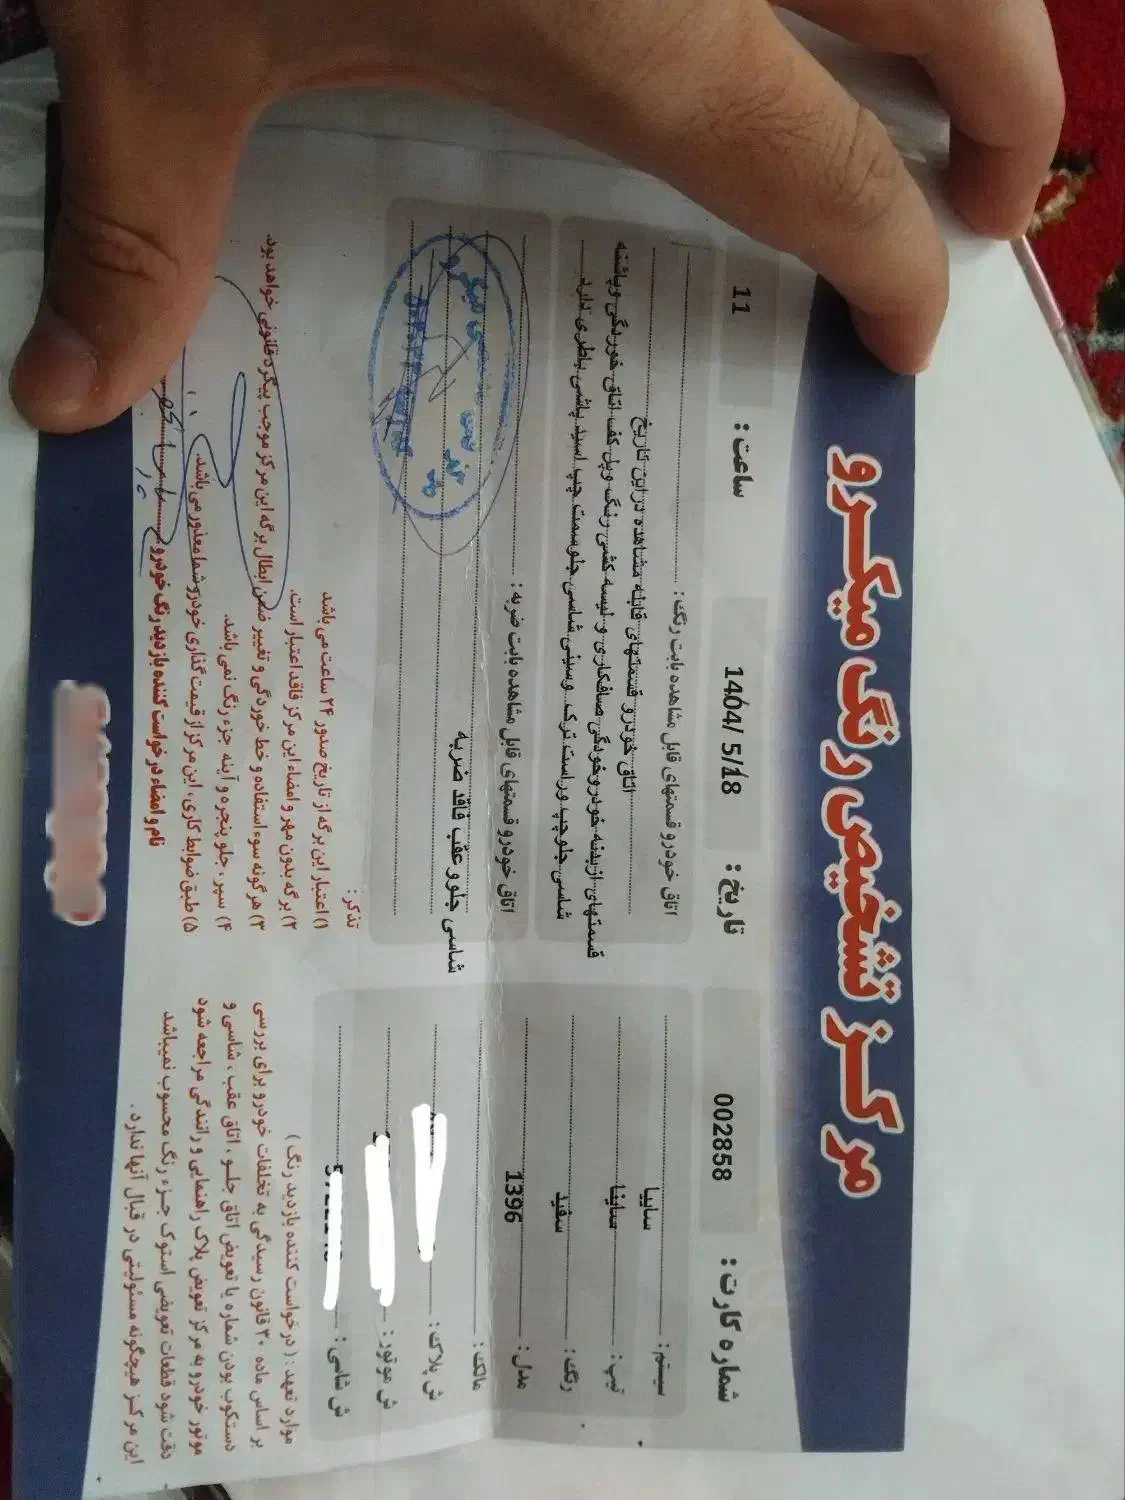 مرکز تشخیص رنگ میکرو
شماره کارت: 002858
تاریخ: 1404/ 5/18
ساعت: 11
سیستم: سایپا
تیپ: ساینا
رنگ: سفید
مدل: 1396
مالک:
ش پلاک:
ش موتور:
ش شاسی:
اتاق خودرو قسمتهای قابل مشاهده بابت رنگ:
اتاق خودرو قسمتهای قابله مشاهده دراین تاریخ
قسمتهای ازبدنه خودروخودگی صافکاری و لیسه کشی رنگ وپل کف اتاق خوردگی وپاشنه
شاسی جلوچپ وراست ترک وسینی شاسی جلوسمت چپ اسید پاشی باطری ندارد
اتاق خودرو قسمتهای قابل مشاهده بابت ضربه:
شاسی جلو و عقب فاقد ضربه
تذکر:
۱) اعتبار این برگه از تاریخ صدور ۲۴ ساعت می باشد
۲) برگه بدون مهر و امضاء این مرکز فاقد اعتبار است.
۳) هرگونه سوء استفاده و خط خوردگی و تغییر ضمن ابطال برگه این مرکز موجب پیگرد قانونی خواهد بود.
۴) سپر، جلو پنجره و آینه جزء رنگ نمی باشد.
۵) طبق ضوابط کاری، این مرکز از قیمت گذاری خودرو شما معذور می باشد.
نام و امضاء درخواست کننده بازدید رنگ خودرو
موارد تعهد: (درخواست کننده بازدید رنگ)
بر اساس ماده ۳۰ قانون رسیدگی به تخلفات خودرو برای بررسی
دستکوب بودن شماره یا تعویض اتاق جلو، اتاق عقب، شاسی و
موتور خودرو به مرکز تعویض پلاک راهنمایی و رانندگی مراجعه شود
دقت شود قطعات تعویضی استوک جزء رنگ محسوب نمیباشد
این مرکز هیچگونه مسئولیتی در قبال آنها ندارد.